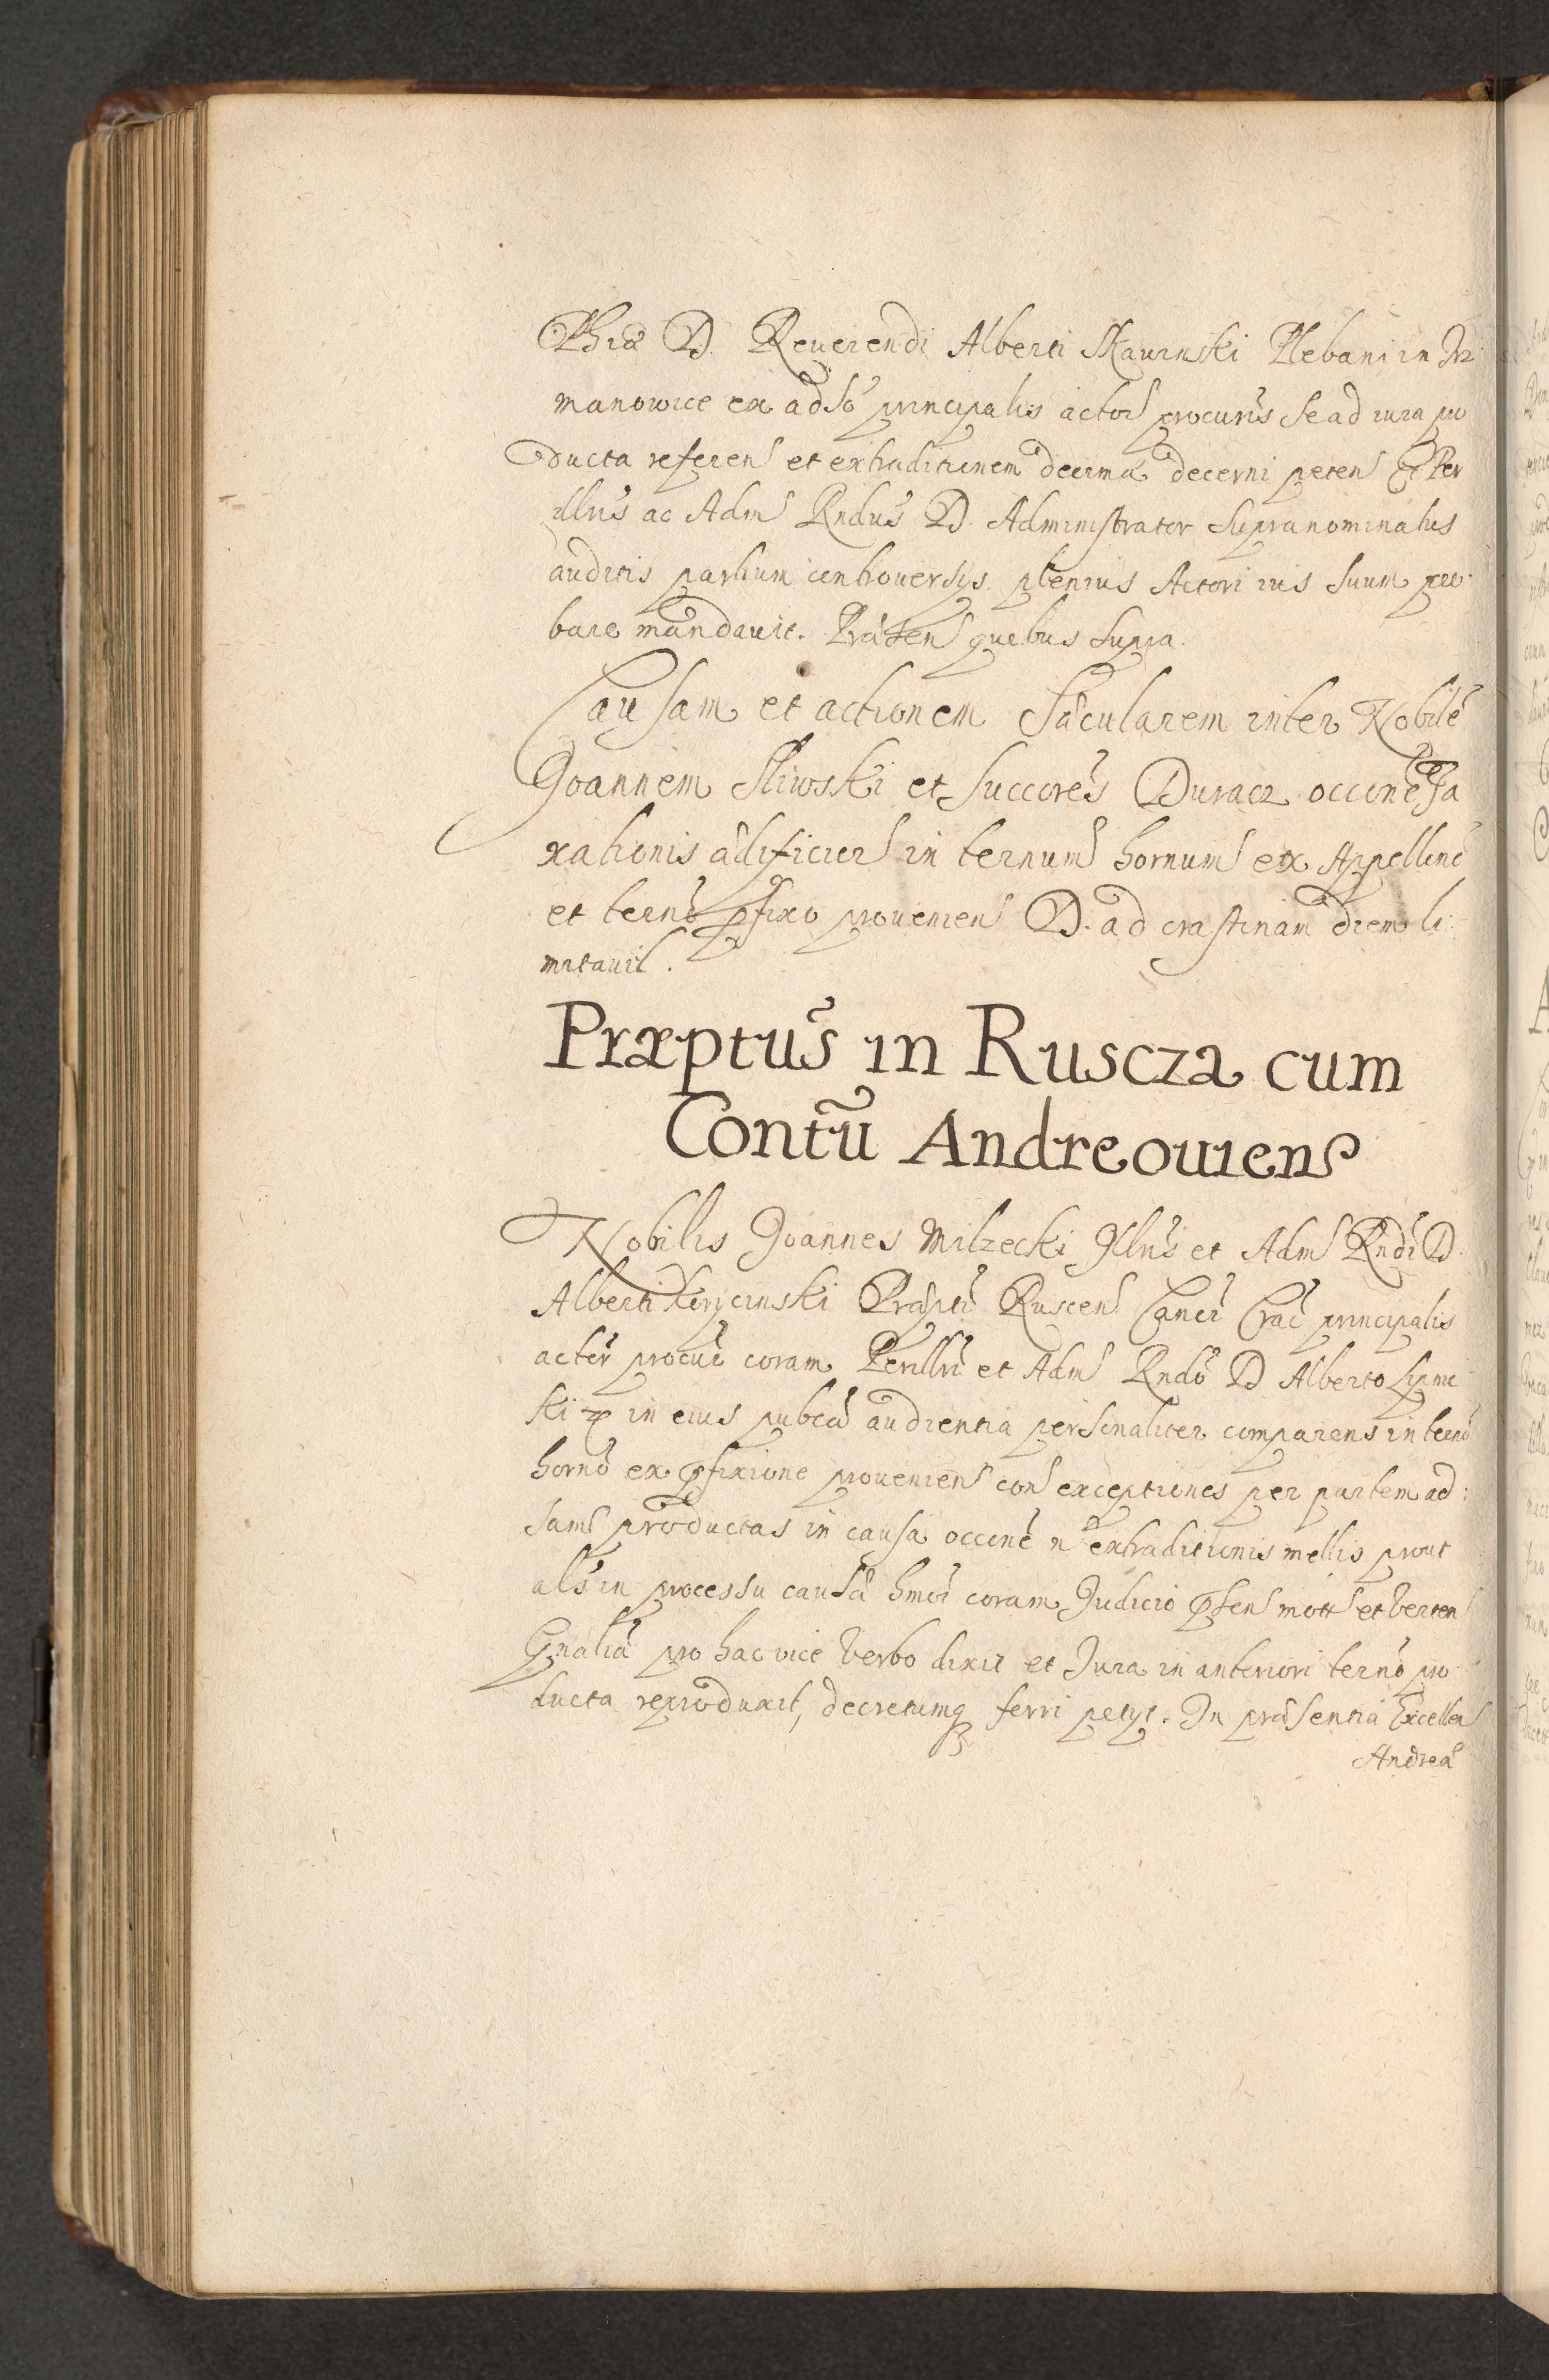 Phiæ D. Reuerendi Alberti Skawinski Plebani in Jr
manowice ex adso principalis actoris procuris se ad iura pro
ducta referens et extraditionem decimæ decerni petens Et Per
illris ac Adm Rndus D. Administrator supranominatus
auditis partium controversys plenius Actori ius suum pro:
bare mandauit. Præsen quibus supra.
Causam et actionem sæcularem inter Nobilē
Joannem Sliwski et succores Duracz occone ta
xationis ædificior in ternum hornum ex Appellne
et ternō pfixo proueniens D. ad crastinam diem li:
mitauit.
Præptus in Ruscza cum
Contū Andreouiens
Nobilis Joannes Milzecki Illris et Adm Rndi D.
Alberti Serycinski Præpti Ruscens Canci Crac principalis
actor procur coram Perillri et Adm Rndo D Alberto Lipnic
ki in eius pubca audientia personaliter comparens in ternō
hornō ex pfixione proueniens con exceptiones per partem ad:
sam productas in causa occone n extraditionis mellis prout
als in processu causæ hmoi coram Judicio pſen mott et verten
Gnalia pro hac vice verbo dixit et Jura in anteriori ternō pro
ducta reproduxit, decretumq ferri petyt. In præsentia Excellen
Andreæ